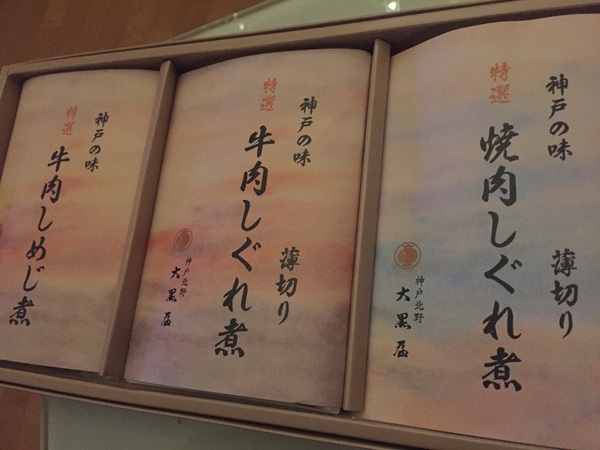 神戸の味
特選
牛肉しめじ煮
神戸の味
特選
牛肉しぐれ煮
薄切り
神戸北野
大黒屋
神戸の味
特選
焼肉しぐれ煮
薄切り
神戸北野
大黒屋